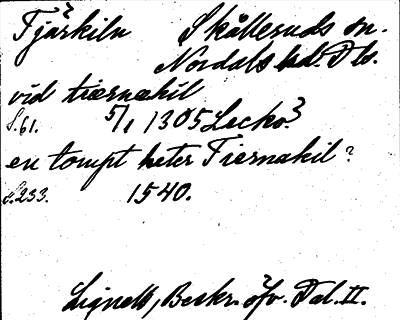 Tjärkiln Skålleruds sn.
Nordals hd. Dls.
vid tiærnækil
S. 61. 5/1 1305 Lecko?
en tompt heter Tiernakil?
S. 233. 1540.
Lignell, Beskr. öfv. Dal. II.